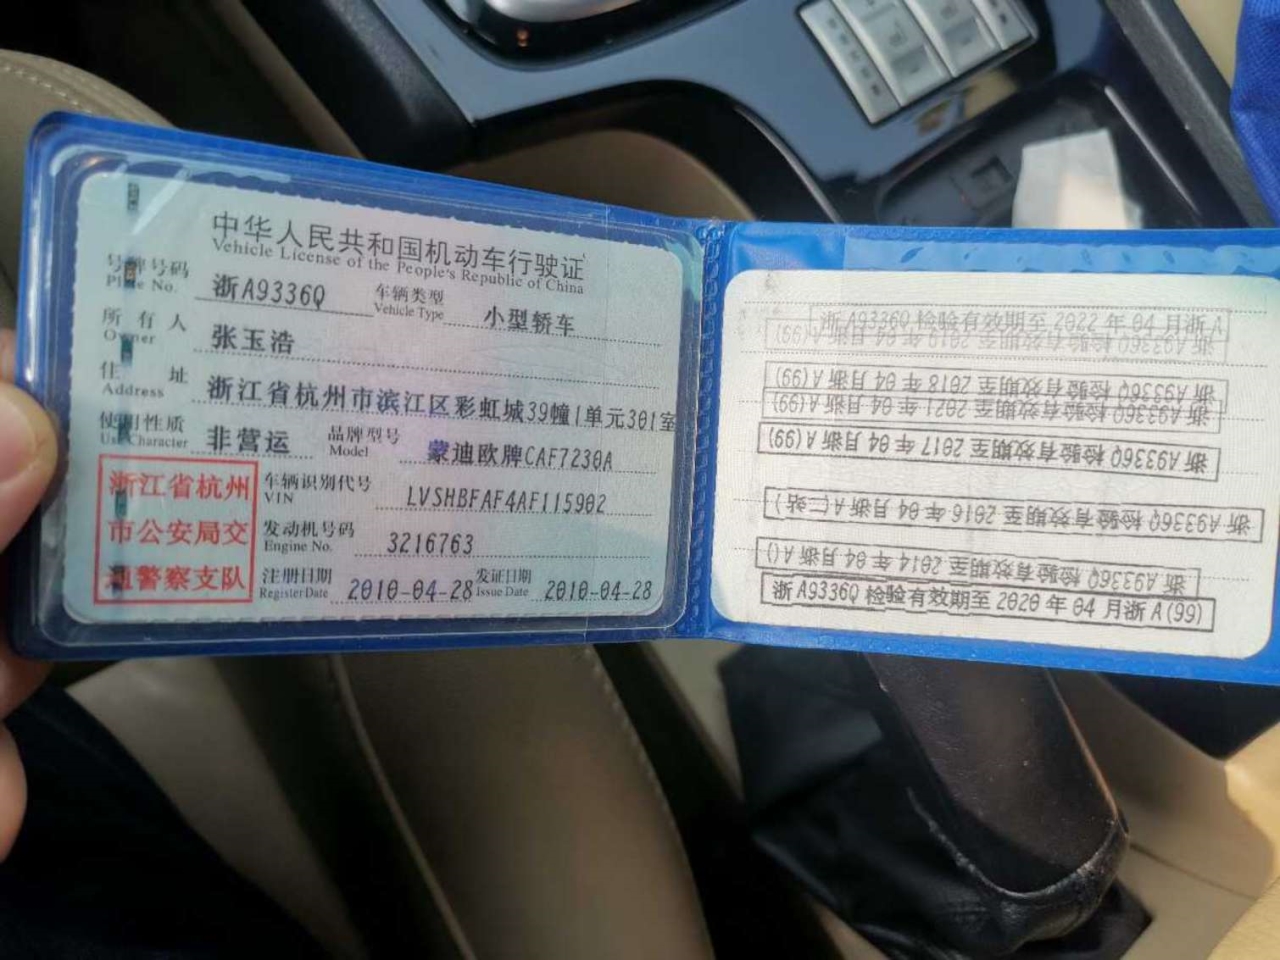 中华人民共和国机动车行驶证
Vehicle License of the People's Republic of China
号牌号码 浙A9336Q 车辆类型 小型轿车
Plate No. Vehicle Type
所有人 张玉浩
Owner
住址 浙江省杭州市滨江区彩虹城39幢1单元301室
Address
使用性质 非营运 品牌型号 蒙迪欧牌CAF7230A
Use Character Model
浙江省杭州
市公安局交
通警察支队
车辆识别代号 LVSHBFAF4AF115902
VIN
发动机号码 3216763
Engine No.
注册日期 2010-04-28 发证日期 2010-04-28
Register Date Issue Date
浙A9336Q 检验有效期至 2022 年 04 月浙A
浙A9336Q 检验有效期至 2019 年 04 月浙A(99)
浙A9336Q 检验有效期至 2018 年 04 月浙A(99)
浙A9336Q 检验有效期至 2021 年 04 月浙A(99)
浙A9336Q 检验有效期至 2017 年 04 月浙A(99)
浙A9336Q 检验有效期至 2016 年 04 月浙A(仁站)
浙A9336Q 检验有效期至 2014 年 04 月浙A()
浙A9336Q 检验有效期至 2020 年 04 月浙A(99)